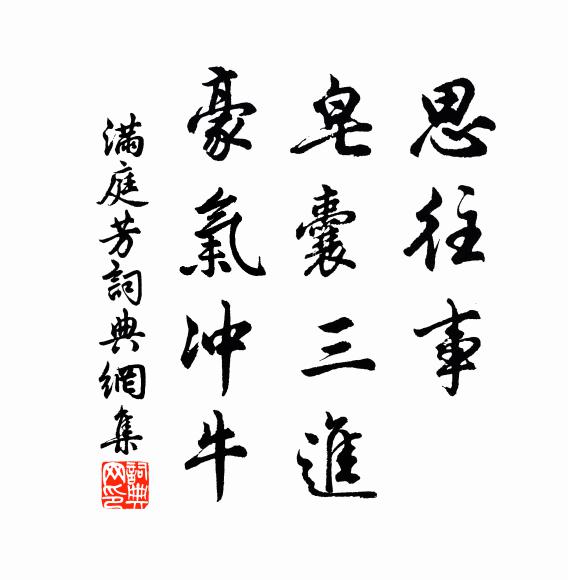 思往事
皂囊三進
豪氣沖牛
滿庭芳詞典網集
詞典网印